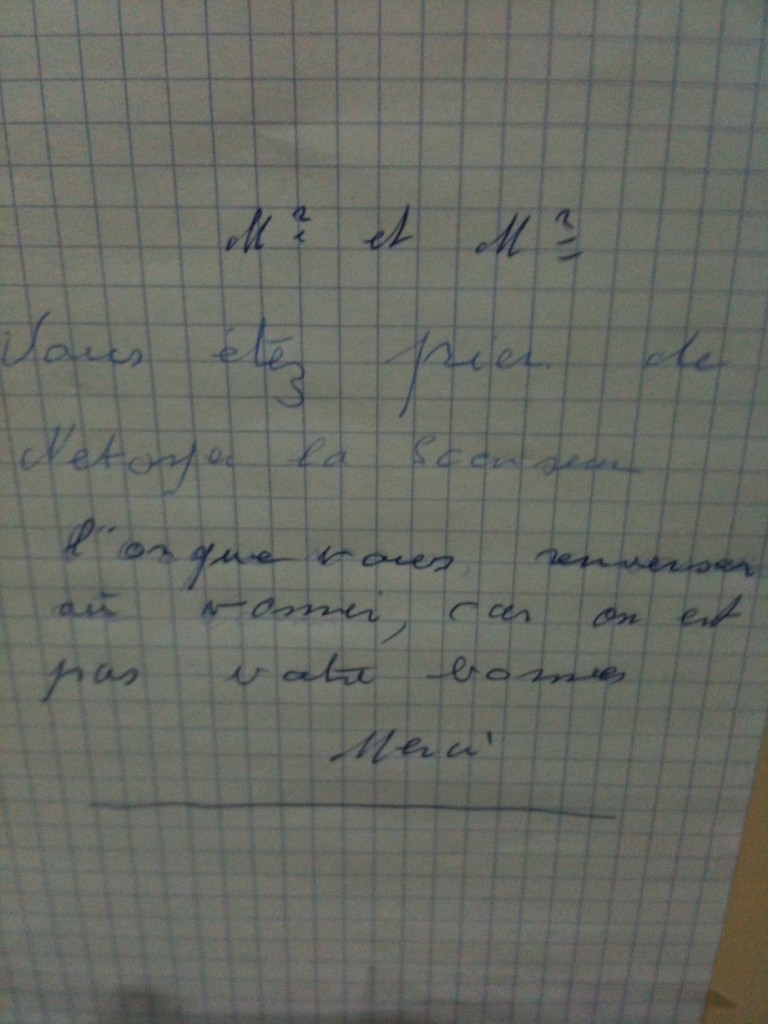 M? et M?
Vous êtez prier de
Netoyer la Scenseur
l'orsque vous renverser
où vomi, car on est
pas votre bonnes
Merci